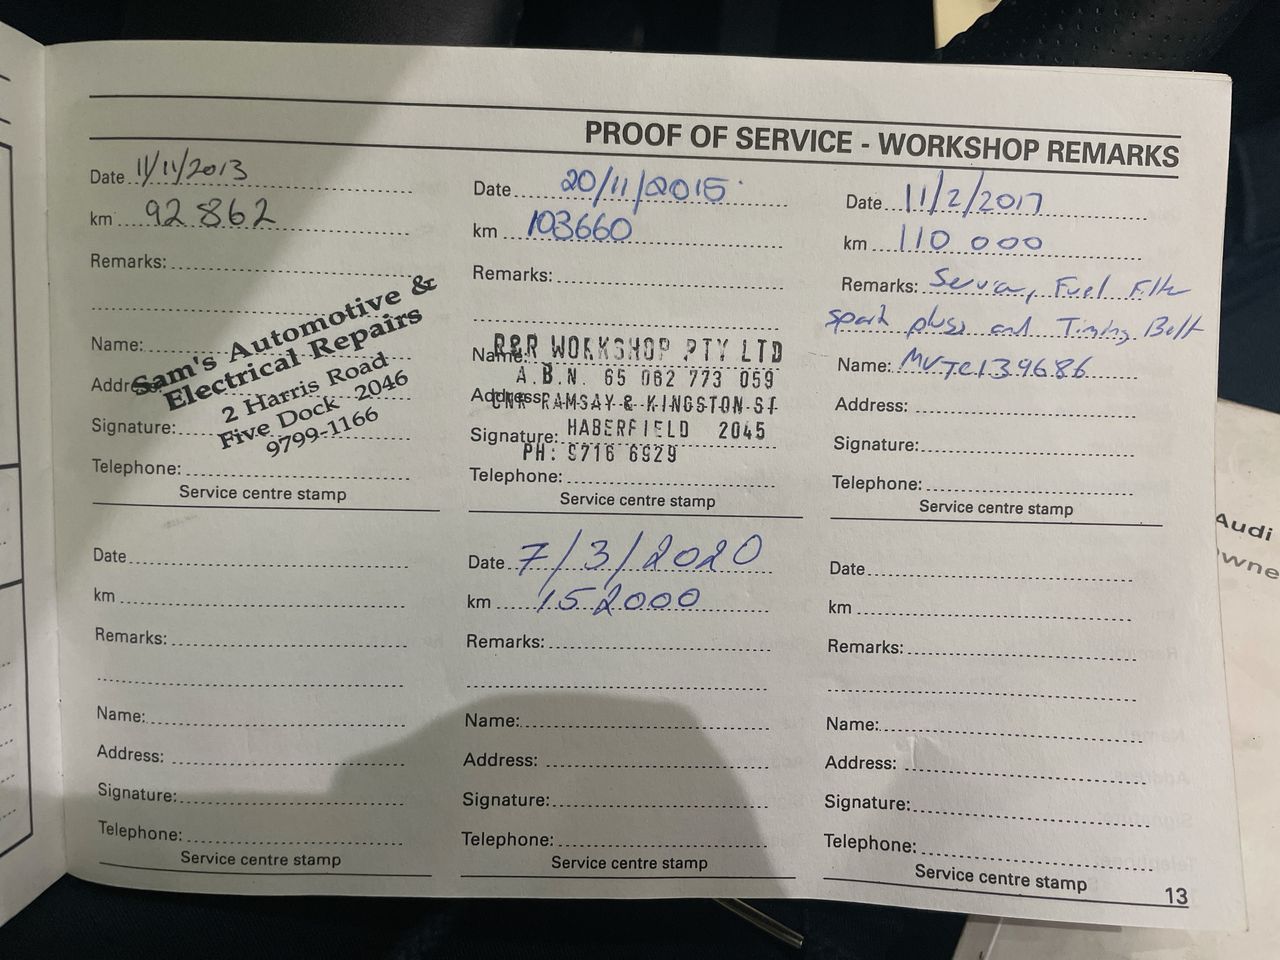 PROOF OF SERVICE - WORKSHOP REMARKS
Date 11/11/2013
km 92 862
Remarks:
Name:
Address:
Signature:
Telephone:
Sam's Automotive &
Electrical Repairs
2 Harris Road
Five Dock 2046
9799-1166
Service centre stamp
Date 20/11/2015
km 103660
Remarks:
Name:
Address:
Signature:
Telephone:
R&R WORKSHOP PTY LTD
A.B.N. 65 062 773 059
CNR RAMSAY & KINGSTON ST
HABERFIELD 2045
PH: 9716 6929
Service centre stamp
Date 11/2/2017
km 110 000
Remarks: Fuel
and Timing Belt
Name: MVTC139686
Address:
Signature:
Telephone:
Service centre stamp
Date
km
Remarks:
Name:
Address:
Signature:
Telephone:
Service centre stamp
Date 7/3/2020
km 152000
Remarks:
Name:
Address:
Signature:
Telephone:
Service centre stamp
Date
km
Remarks:
Name:
Address:
Signature:
Telephone:
Service centre stamp
13
Audi